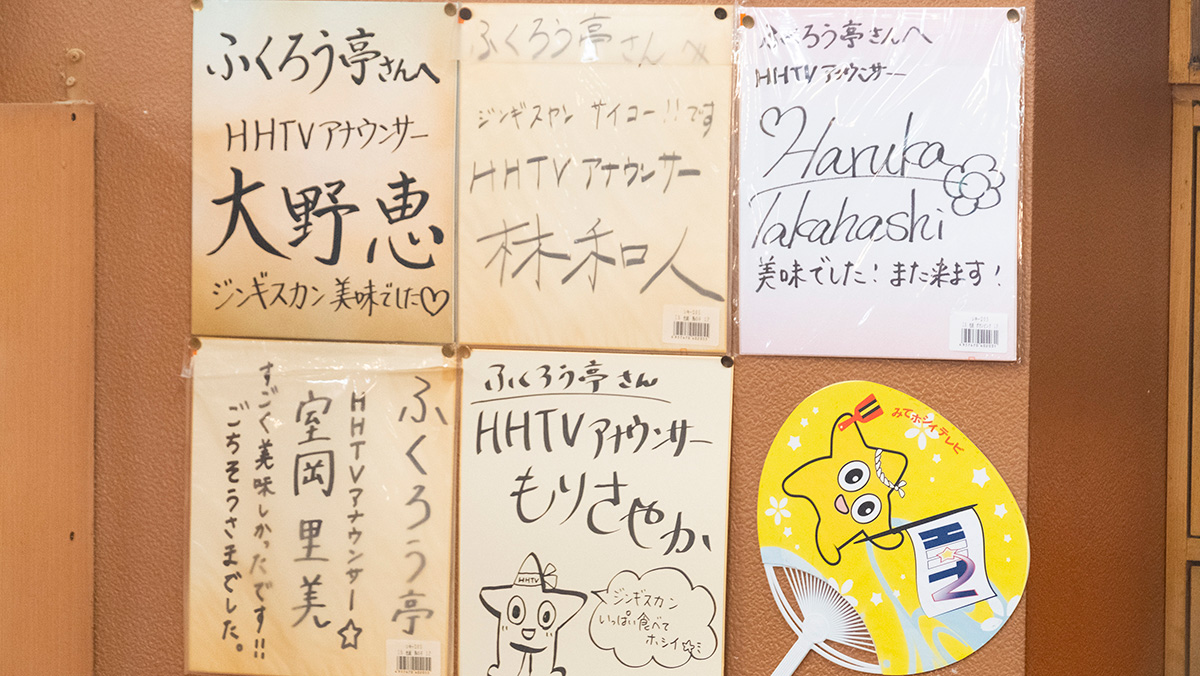 ふくろう亭さんへ
HHTVアナウンサー
大野恵
ジンギスカン美味でした♡
ふくろう亭さんへ
ジンギスカン サイコー!!です
HHTVアナウンサー
林和人
ふくろう亭さんへ
HHTVアナウンサー
♡Haruka
Takahashi
美味でした!また来ます!
ふくろう亭
HHTVアナウンサー☆
室岡里美
すごく美味しかったです!!
ごちそうさまでした。
ふくろう亭さん
HHTVアナウンサー
もりさやか
HHTV
ジンギスカン
いっぱい食べて
ホシイ☆ミ
みてホシイテレビ
HHTV